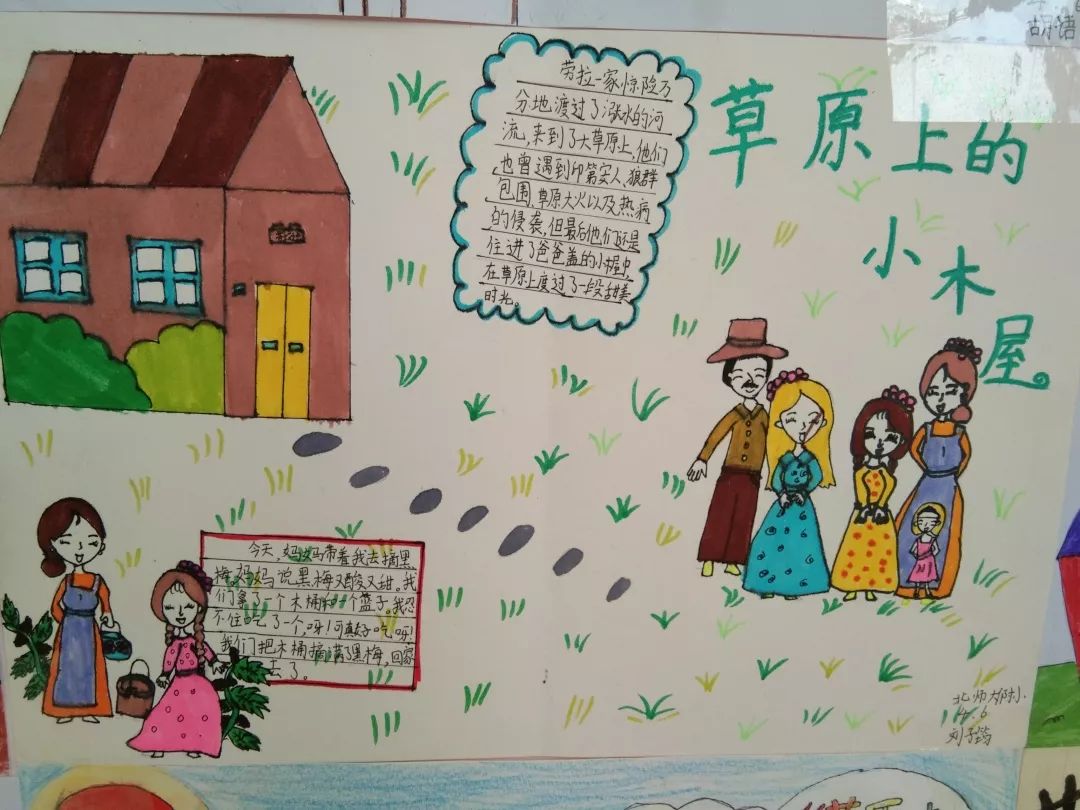 草原上的
小木
屋。
劳拉一家惊险万
分地渡过了涨水的河
流,来到了大草原上,他们
也曾遇到印第安人、狼群
包围、草原大火以及热病
的侵袭,但最后他们还是
住进了爸爸盖的小木屋里,
在草原上度过了一段甜美
时光。
今天,妈妈带着我去摘黑
梅,妈妈说黑梅又酸又甜。我
们拿了一个木桶和一个篮子。我忍
不住吃了一个,呀!可真好吃呀!
我们把木桶摘满了黑梅,回家
去了。
北师大附小
4.6
刘子筠
胡